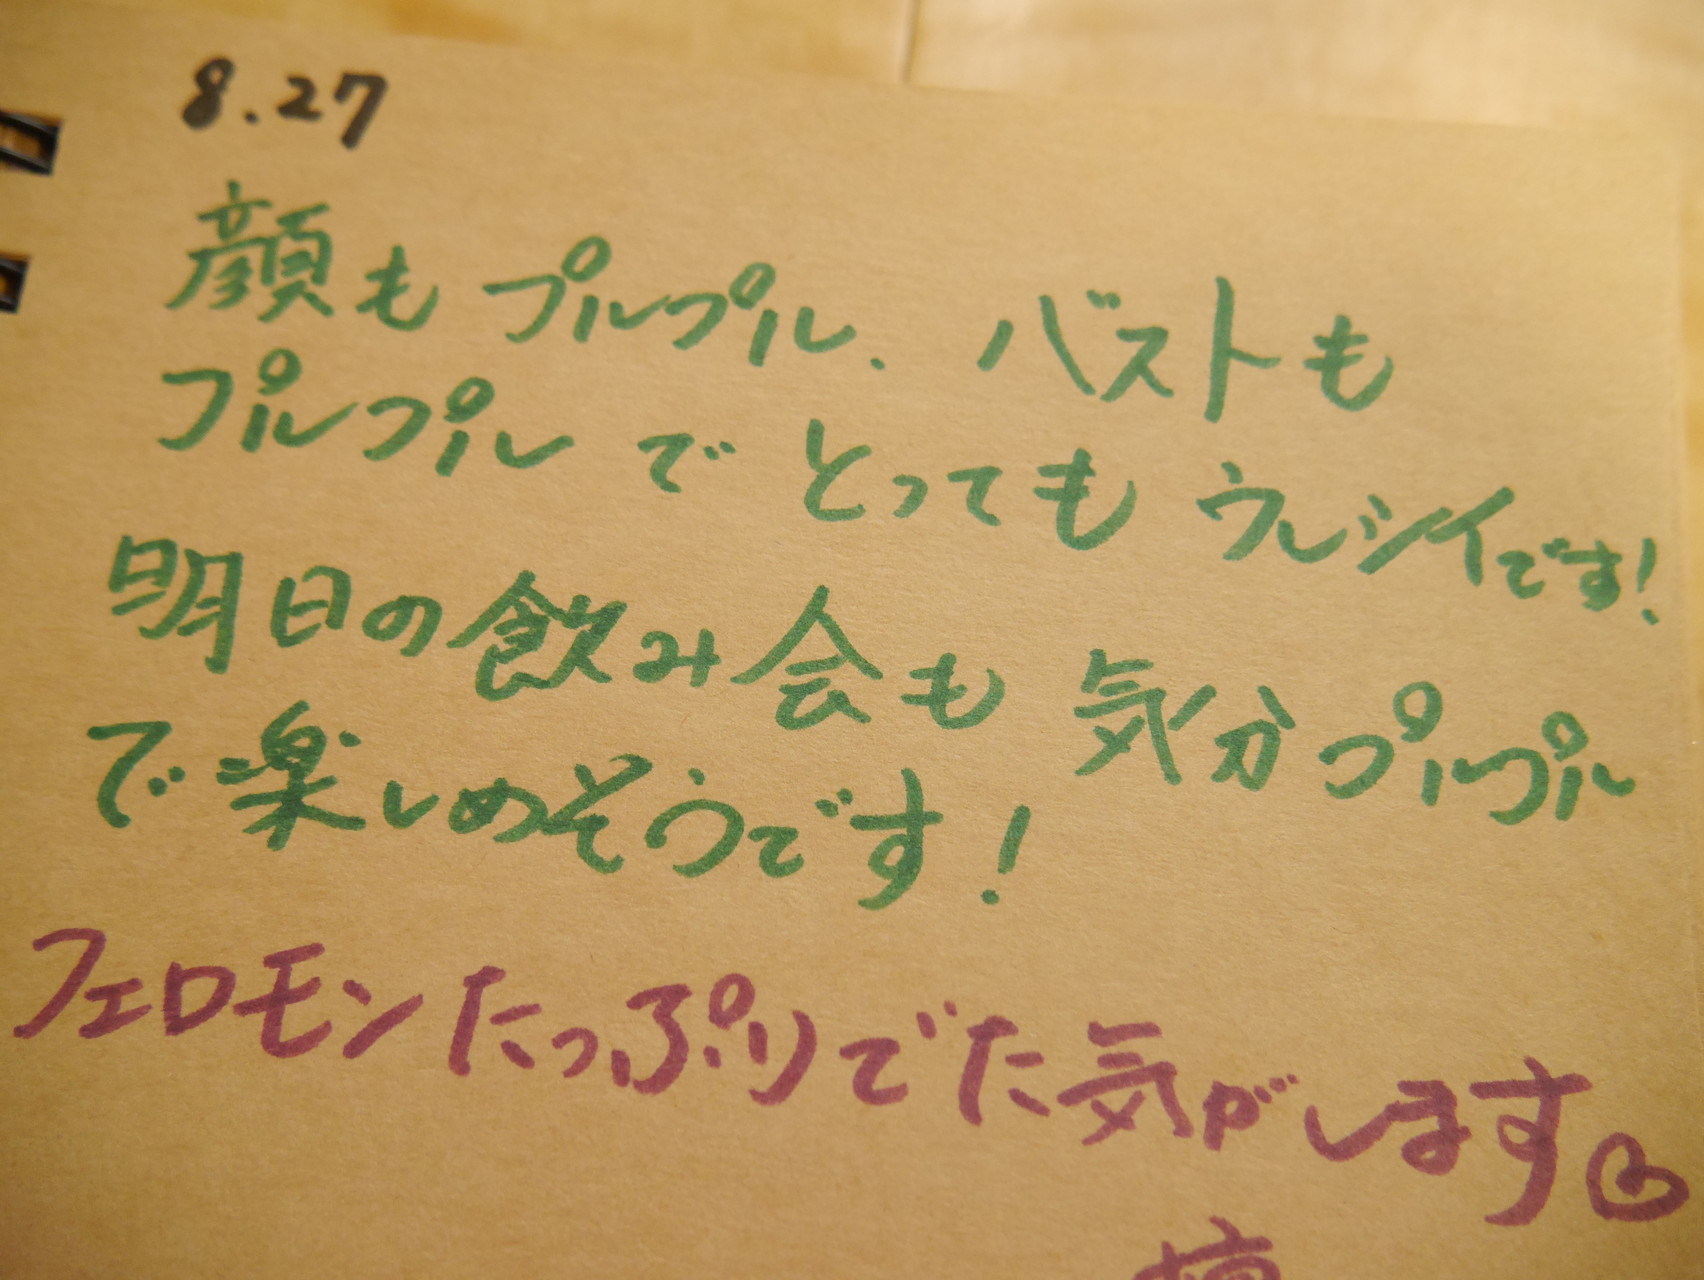 8.27
顔もプルプル、バストも
プルプルでとってもウレシイです!
明日の飲み会も気分プルプル
で楽しめそうです!
フェロモンたっぷりでた気がします♡